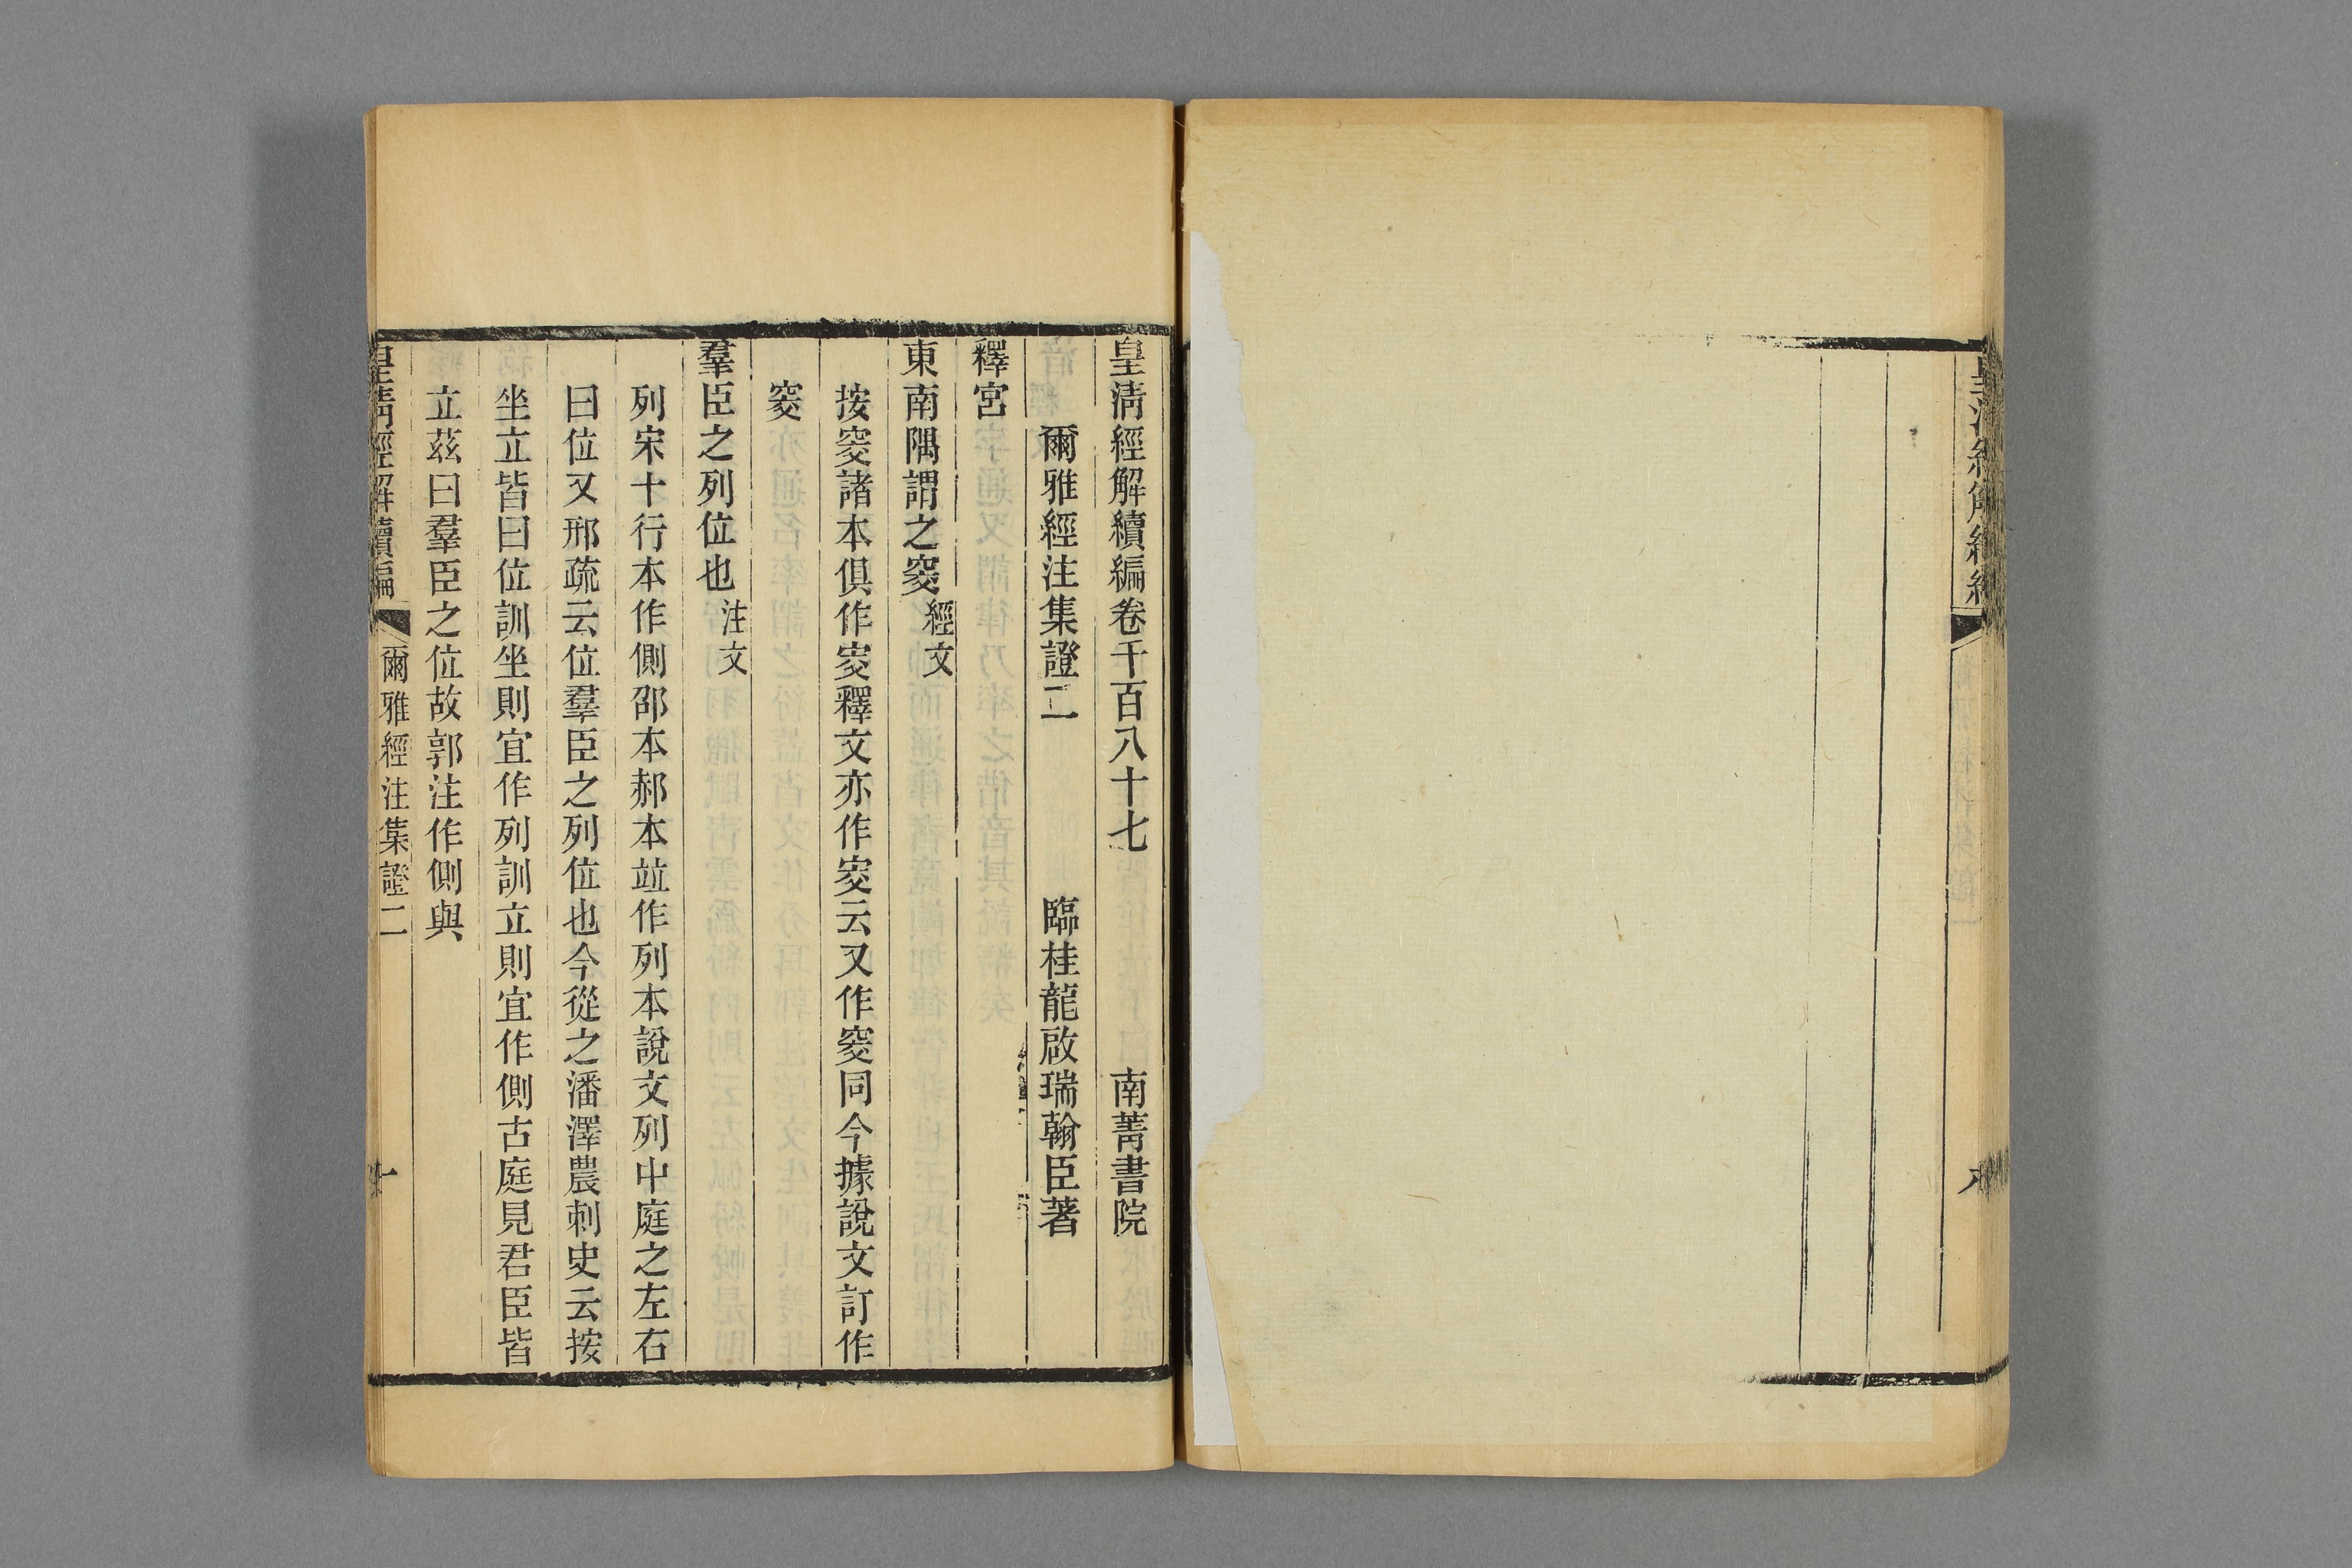 皇清經解續編
八
皇清經解續編卷千百八十七 南菁書院
爾雅經注集證二 臨桂龍啟瑞翰臣著
釋宮
東南隅謂之窔經文
按窔諸本俱作㝔釋文亦作㝔云又作窔同今據說文訂作
窔
羣臣之列位也注文
列宋十行本作側邵本郝本竝作列本說文列中庭之左右
曰位又邢疏云位羣臣之列位也今從之潘澤農刺史云按
坐立皆曰位訓坐則宜作列訓立則宜作側古庭見君臣皆
立茲曰羣臣之位故郭注作側與
皇清經解續編 爾雅經注集證二 一